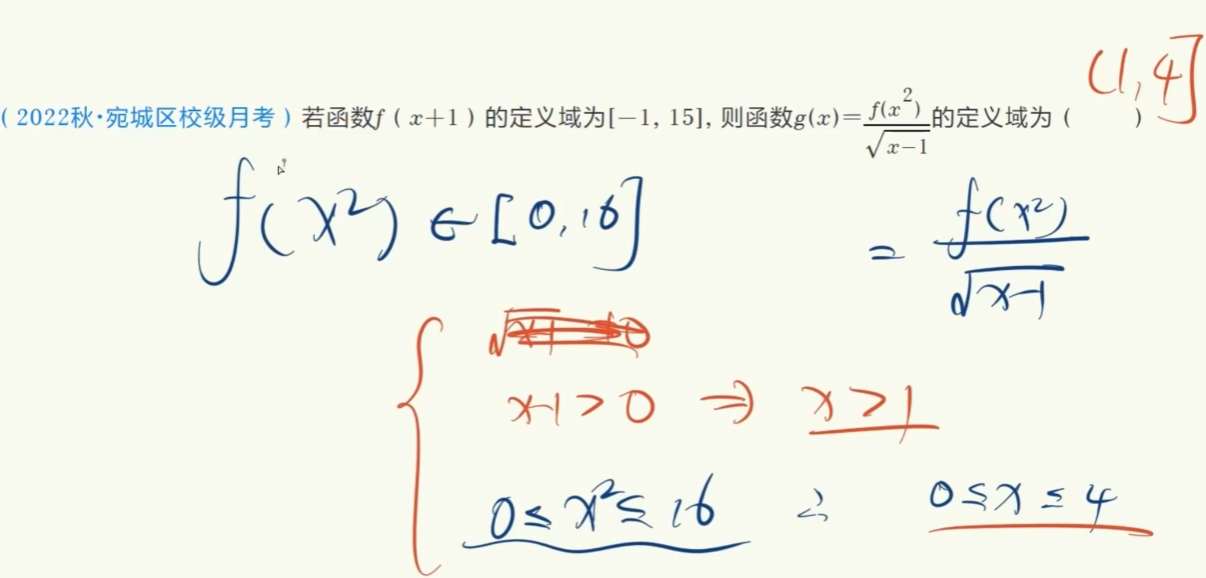 (1,4]
(2022秋·宛城区校级月考)若函数f(x+1)的定义域为[-1,15],则函数g(x)=f(x²)/√(x-1)的定义域为( )
f(x²)∈[0,16]
=f(x²)/√(x-1)
x-1>0 ⇒ x>1
0≤x²≤16 ∴ 0≤x≤4